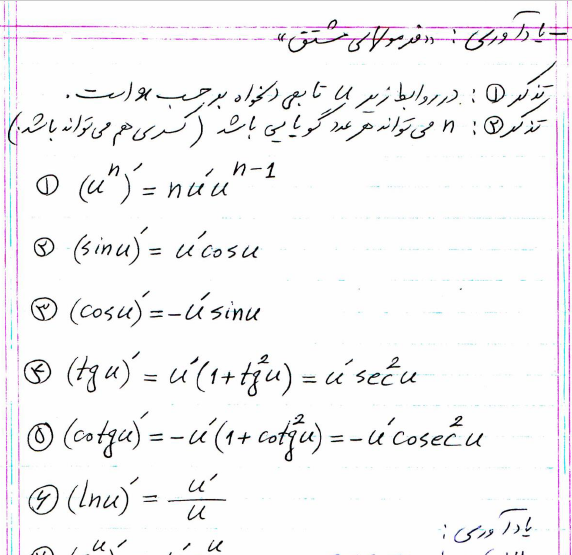 - یادآوری : «فرمولهای مشتق»
تذکر ① : در روابط زیر u تابعی دلخواه برحسب x است.
تذکر ② : n می‌تواند هر عدد گویایی باشد (کسری هم می‌تواند باشد.)
① (uⁿ)′ = nu′uⁿ⁻¹
② (sinu)′ = u′cosu
③ (cosu)′ = -u′sinu
④ (tgu)′ = u′(1+tg²u) = u′sec²u
⑤ (cotgu)′ = -u′(1+cotg²u) = -u′cosec²u
⑥ (lnu)′ = u′/u
یادآوری :